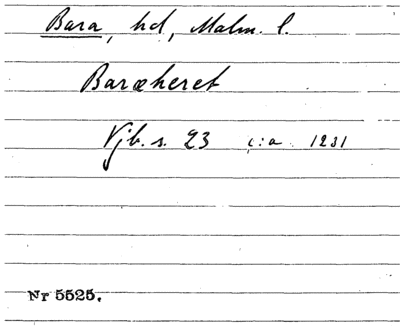 Bara, hd, Malm. l.
Baræheret
Vjb. s. 23 c:a 1231
Nr 5525.